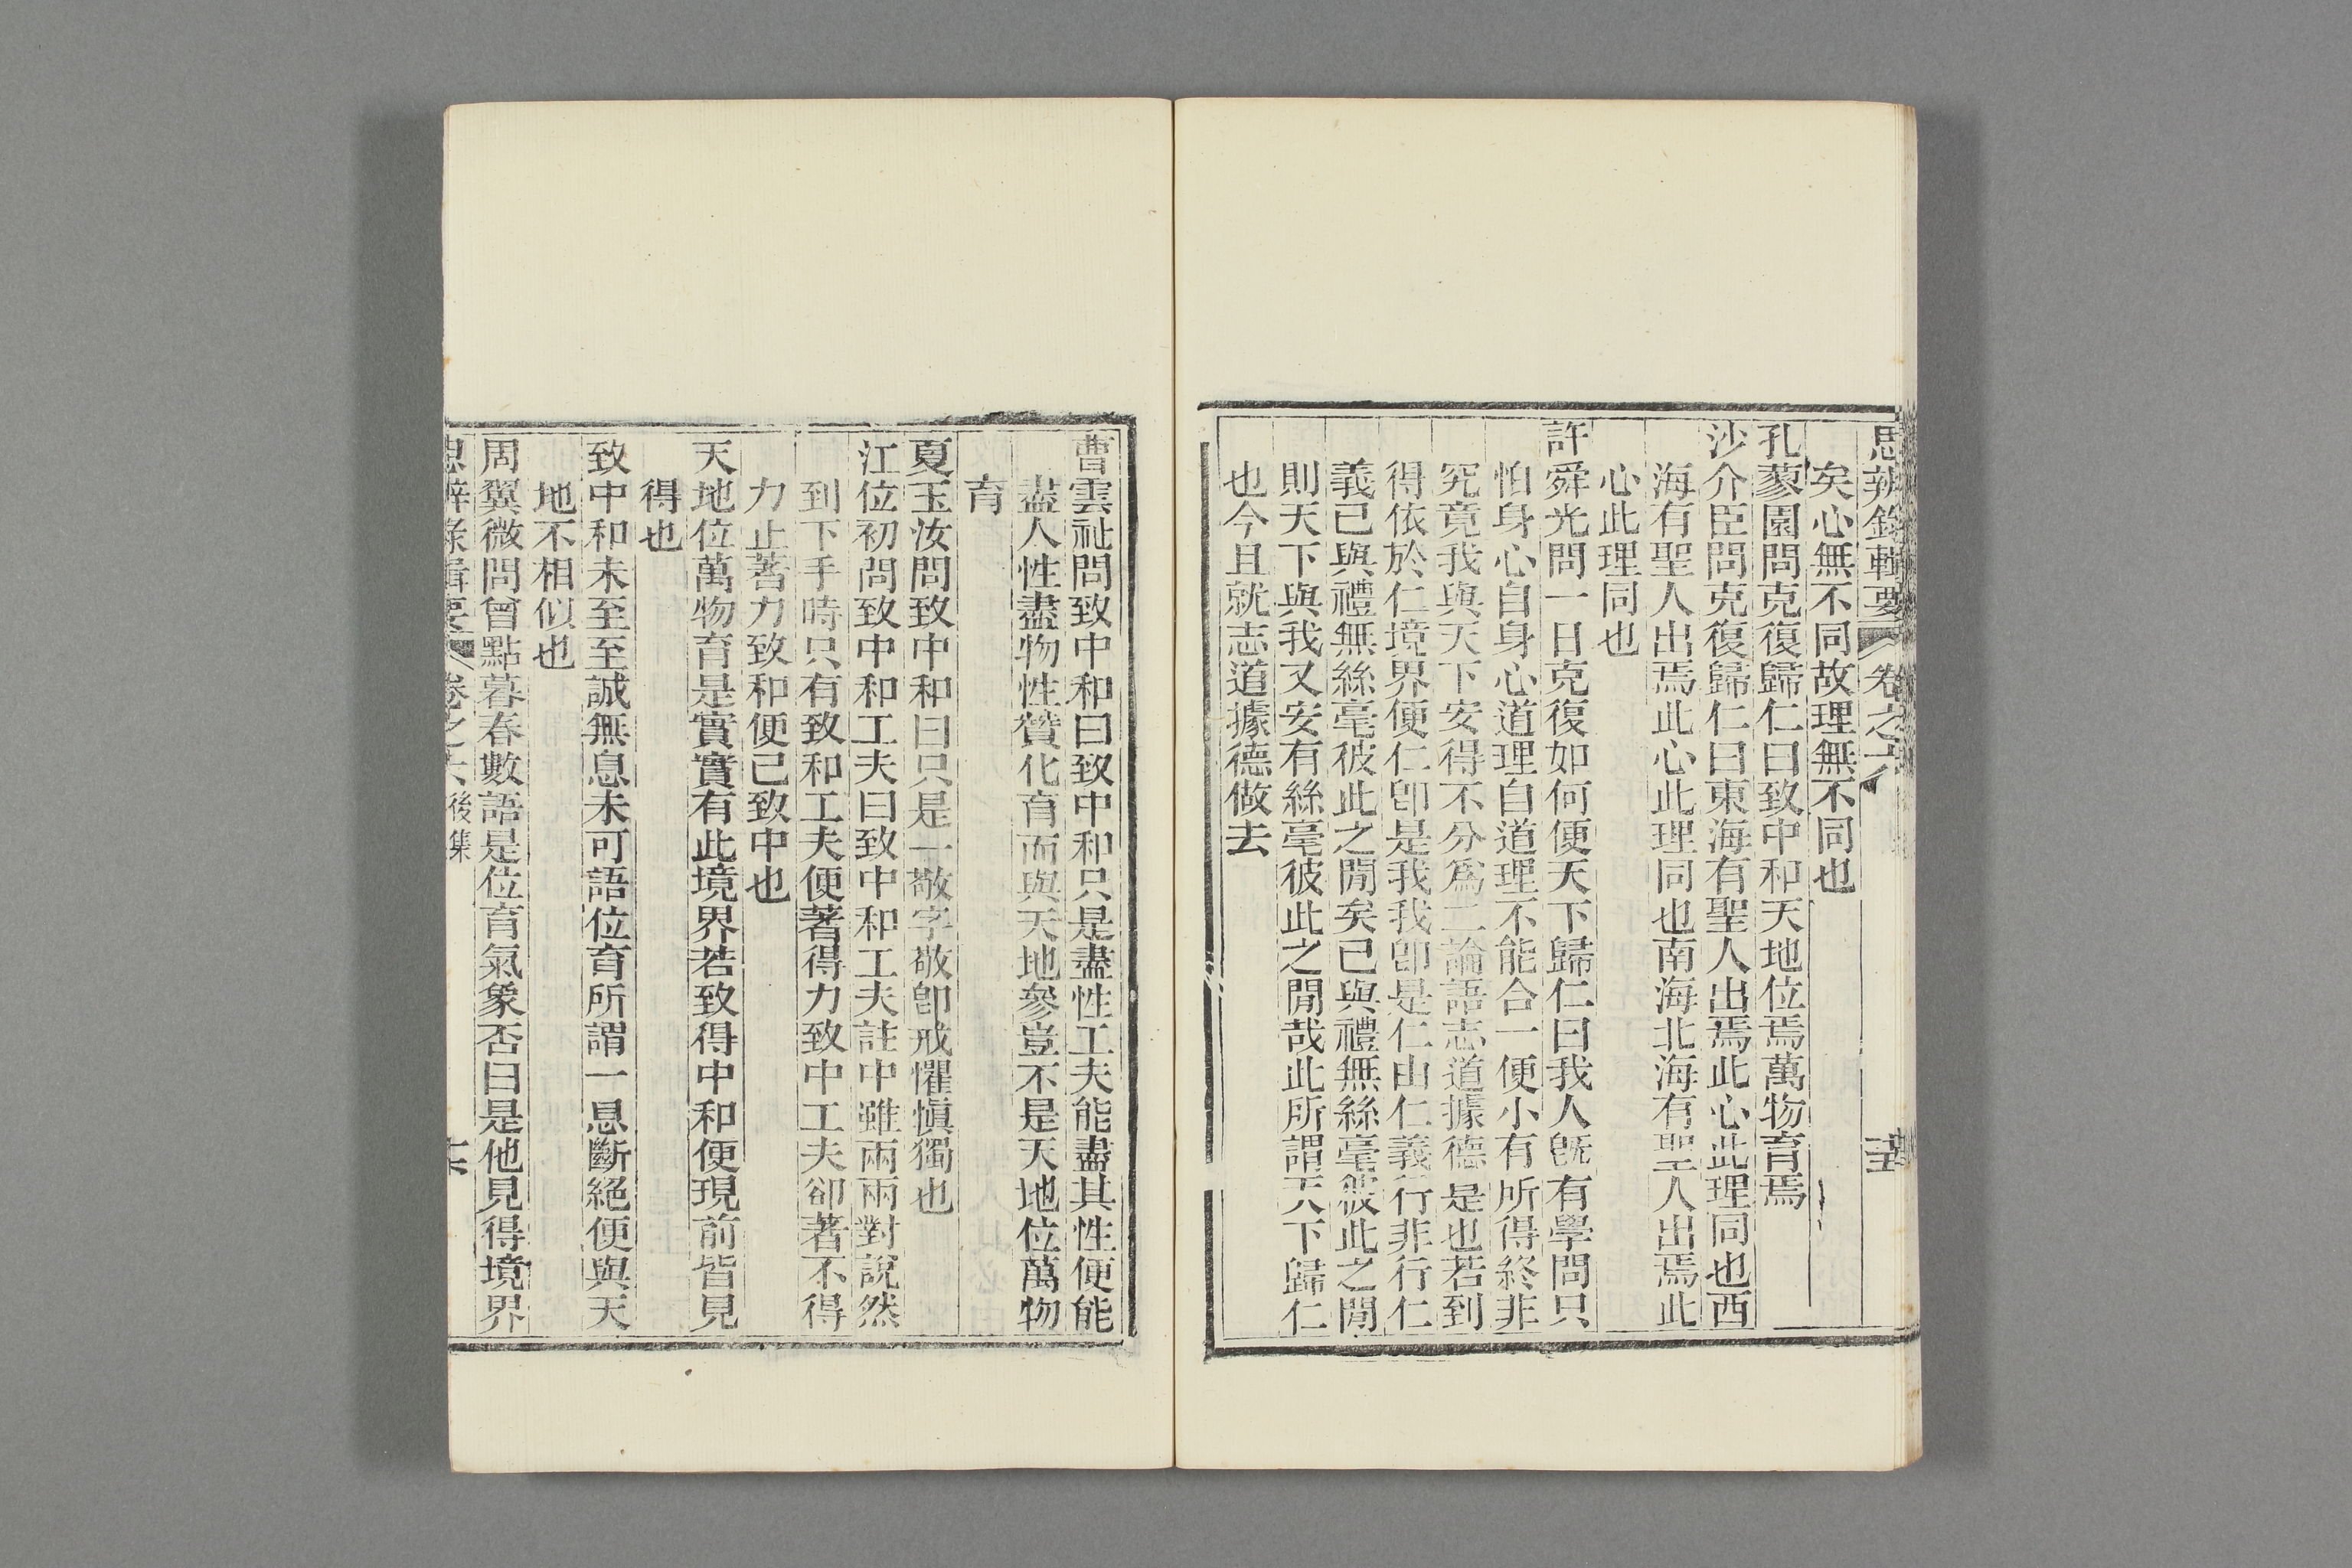 思辨錄輯要　卷之六
矣心無不同故理無不同也
孔蓼園問克復歸仁曰致中和天地位焉萬物育焉
沙介臣問克復歸仁曰東海有聖人出焉此心此理同也西
海有聖人出焉此心此理同也南海北海有聖人出焉此
心此理同也
許舜光問一日克復如何便天下歸仁曰我人旣有學問只
怕身心自身心道理自道理不能合一便小有所得終非
究竟我與天下安得不分爲二論語志道據德是也若到
得依於仁境界便仁卽是我我卽是仁由仁義行非行仁
義已與禮無絲毫彼此之閒矣已與禮無絲毫彼此之閒
則天下與我又安有絲毫彼此之閒哉此所謂天下歸仁
也今且就志道據德做去
曹雲祉問致中和曰致中和只是盡性工夫能盡其性便能
盡人性盡物性贊化育而與天地參豈不是天地位萬物
育
夏玉汝問致中和曰只是一敬字敬卽戒懼愼獨也
江位初問致中和工夫曰致中和工夫註中雖兩兩對說然
到下手時只有致和工夫便著得力致中工夫卻著不得
力止著力致和便已致中也
天地位萬物育是實實有此境界若致得中和便現前皆見
得也
致中和未至至誠無息未可語位育所謂一息斷絕便與天
地不相似也
周翼微問曾點暮春數語是位育氣象否曰是他見得境界
思辨錄輯要　卷之六後集